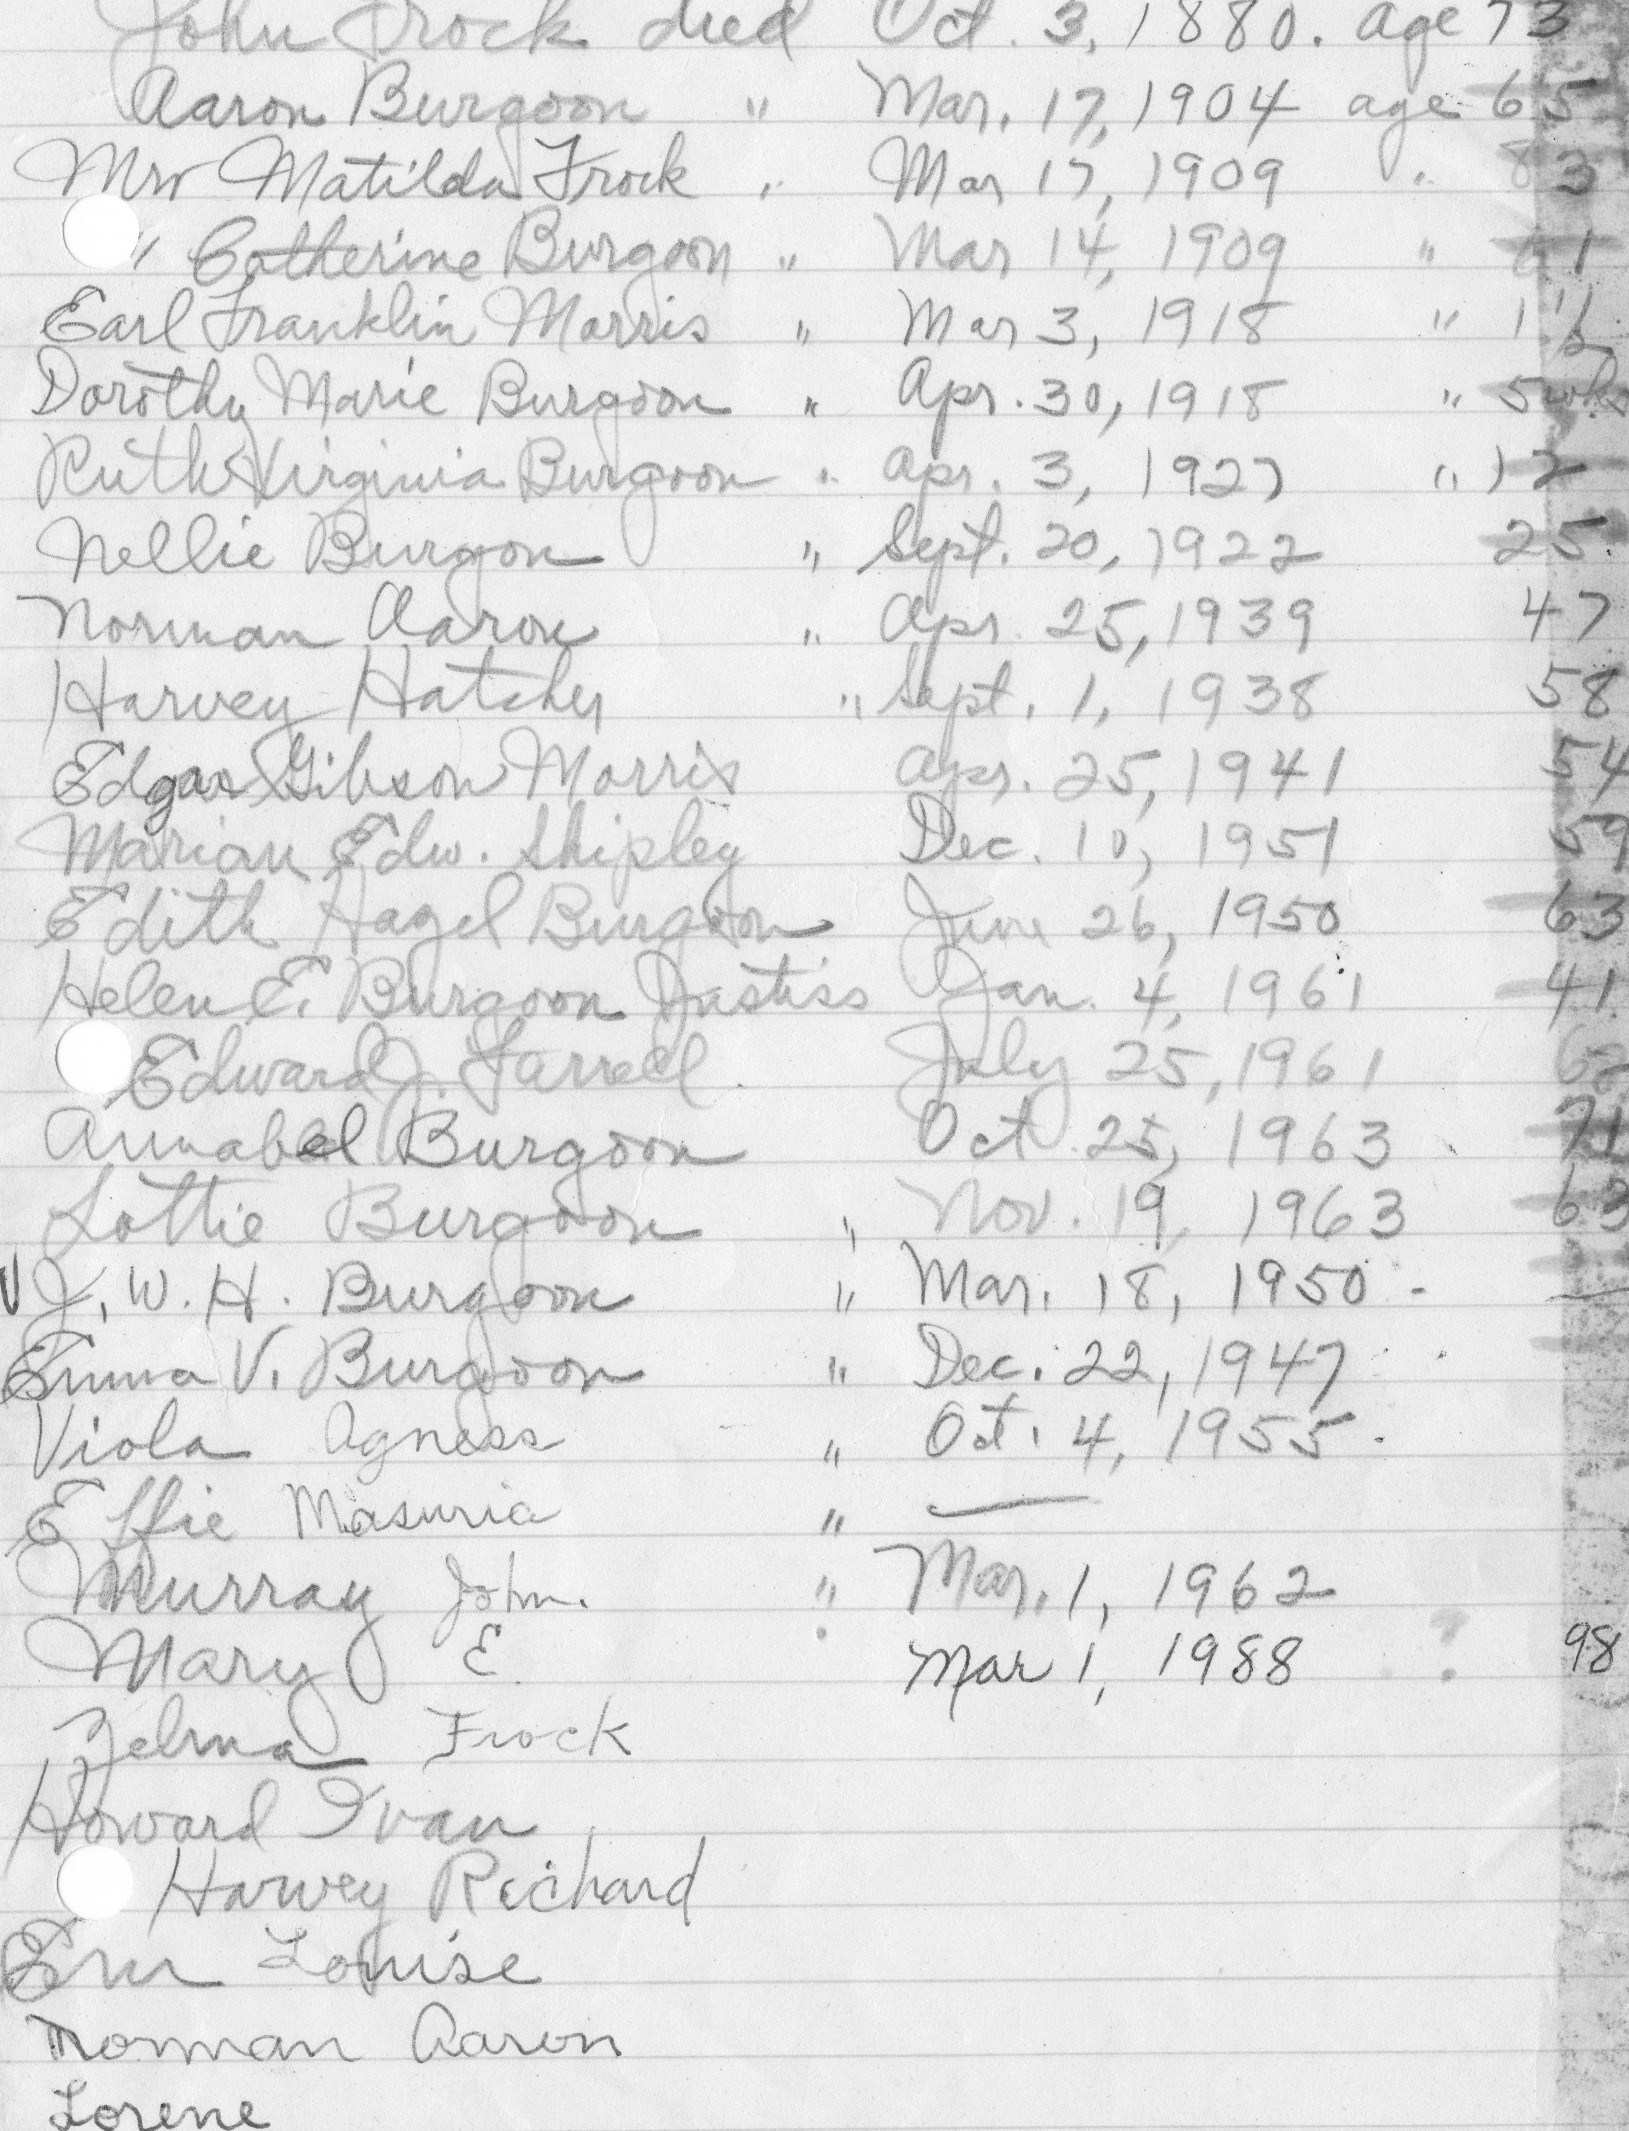 John Frock died Oct. 3, 1880. age 73
Aaron Burgoon " Mar. 17, 1904 age 65
Mrs Matilda Frock " Mar 17, 1909 " 83
" Catherine Burgoon " Mar 14, 1909 " 61
Earl Franklin Morris " Mar 3, 1918 " 1 1/2
Dorothy Marie Burgoon " Apr. 30, 1918 " 5 wks
Ruth Virginia Burgoon " Apr. 3, 1927 " 12
Nellie Burgoon " Sept. 20, 1922 25
Norman Aaron " Apr. 25, 1939 47
Harvey Hatcher " Sept. 1, 1938 58
Edgar Gibson Morris Apr. 25, 1941 54
Marian Edw. Shipley Dec. 10, 1951 59
Edith Hazel Burgoon June 26, 1950 63
Helen E. Burgoon Justiss Jan. 4, 1961 41
Edward J. Farrell July 25, 1961
Annabel Burgoon Oct. 25, 1963 71
Lottie Burgoon " Nov. 19, 1963 63
J. W. H. Burgoon " Mar. 18, 1950 - —
Emma V. Burgoon " Dec. 22, 1947
Viola Agness " Oct. 4, 1955.
Effie Masuria " —
Murray John. " Mar. 1, 1962
Mary E. " Mar 1, 1988 ? 98
Zelma Frock
Howard Ivan
Harvey Richard
Louise
Norman Aaron
Lorene